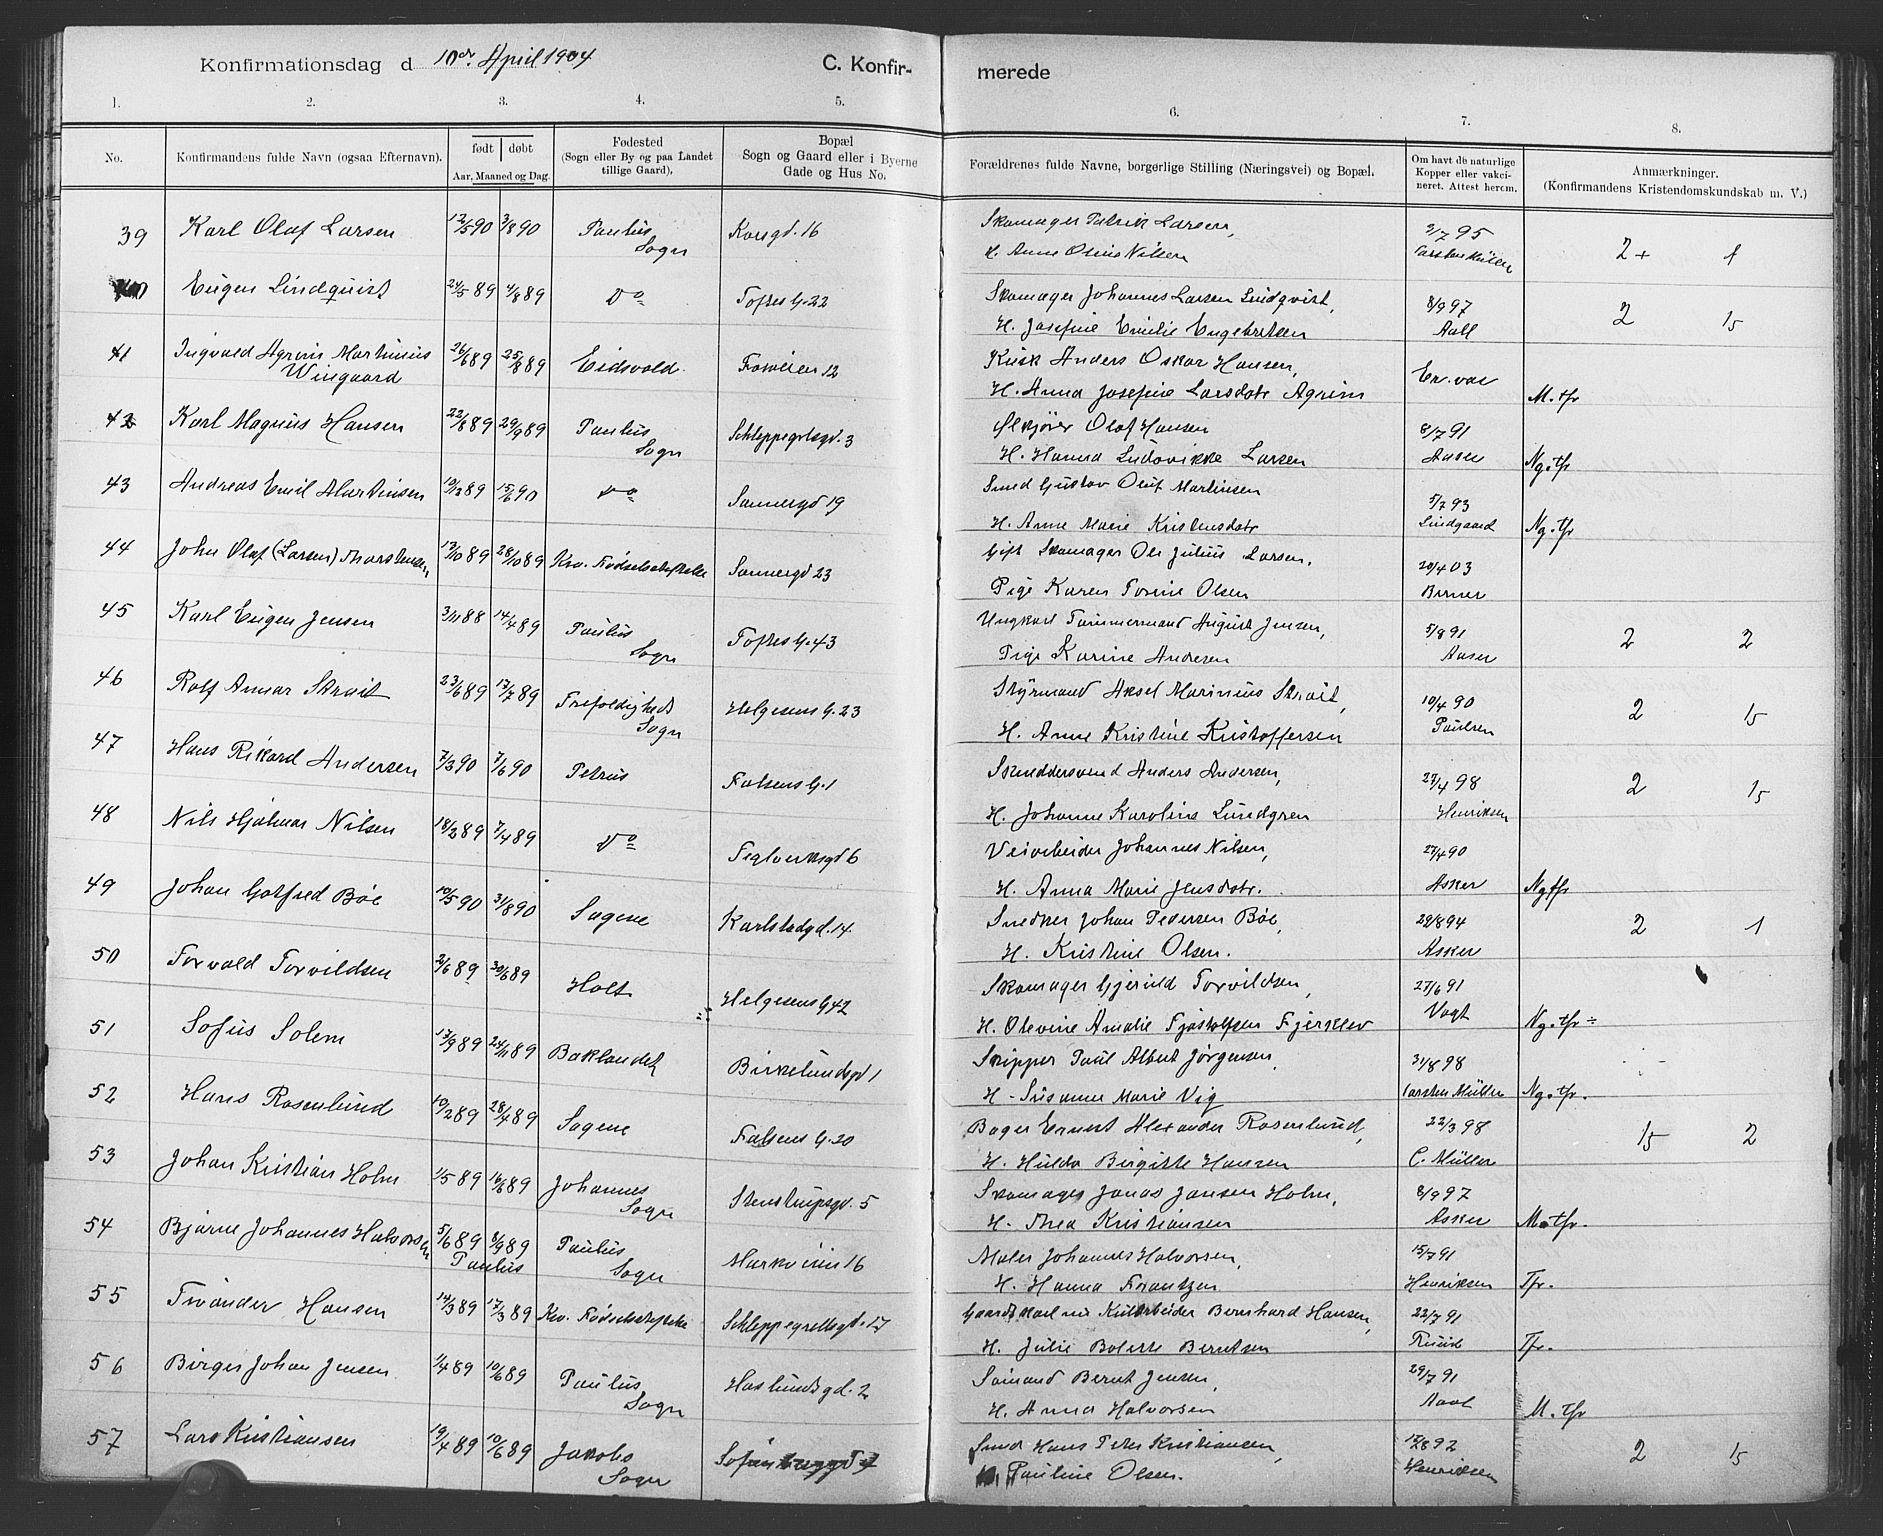 Konfirmationsdag d 10de April 1904 C. Konfirmerede
1. 2. 3. 4. 5. 6. 7. 8.
No.
Konfirmandens fulde Navn (ogsaa Efternavn).
født døbt
Aar, Maaned og Dag.
Fødested
(Sogn eller By og paa Landet
tillige Gaard).
Bopæl
Sogn og Gaard eller i Byerne
Gade og Hus No.
Forældrenes fulde Navne, borgerlige Stilling (Næringsvei) og Bopæl.
Om havt de naturlige
Kopper eller vakci-
neret. Attest herom.
Anmærkninger.
(Konfirmandens Kristendomskundskab m. V.)
39 Karl Olaf Larsen 12/5 90 3/8 90 Paulus Sogn Korsgd. 16 Skomager Patrik Larsen, 2/7 95 2+ 1
H. Anne Oline Nilsen Carsten Müller
40 Eugen Lindquist 24/5 89 4/8 89 Do Toftes G. 22 Skomager Johannes Larsen Lindqvist, 8/9 97 2 15
H. Josefine Emilie Engebretsen Aall
41 Ingvald Agrim Martinius 26/6 89 25/8 89 Eidsvold Fossveien 12 Kusk Anders Oskar Hansen, Er. vac
Wingaard H. Anna Josefine Larsdatr Agrim M. tfr
42 Karl Magnus Hansen 22/8 89 29/9 89 Paulus Sogn Schleppegrlsgd. 3 Ølkjører Olaf Hansen 8/7 91
H. Hanna Ludovikke Larsen Aaser Ng. tfr
43 Andreas Emil Martinsen 19/12 89 15/6 90 Do Sannergd 19 Smed Gustav Oluf Martinsen 5/7 93
H. Anne Marie Kristensdatr Lindgaard Ng. tfr
44 John Olaf (Larsen) Thorstensen 13/10 89 28/10 89 Krv. Fødselsstiftelse Sannergd 23 Gift Skomager Ole Julius Larsen, 20/4 03
Pige Karen Torine Olsen Berner
45 Karl Eugen Jensen 3/11 88 14/4 89 Paulus Sogn Toftes G. 43 Ungkarl Tømmermand August Jensen, 5/8 91 2 2
Pige Karine Andresen Aaser
46 Rolf Annar Skroit 23/6 89 17/7 89 Trefoldigheds Sogn Helgesens G. 23 Styrmand Aksel Marinius Skroit, 10/4 90 2 15
H. Anne Kristine Kristoffersen Paulsen
47 Hans Rikard Andersen 7/3 90 7/6 90 Petrus Falsens G. 1 Skræddersvend Anders Andersen, 27/4 98 2 15
H. Johanne Karoline Lundgren Henriksen
48 Nils Hjalmar Nilsen 18/2 89 7/4 89 Do Teglverksgd 6 Veiarbeider Johannes Nilsen, 27/4 90
H. Anna Marie Jensdatr. Asker Ng tfr
49 Johan Gotfred Bøe 10/5 90 31/8 90 Sagene Karlstadgd. 14 Snedker Johan Pedersen Bøe, 29/8 94 2 1
H. Kristine Olsen. Asker
50 Torvald Torvildsen 2/6 89 30/6 89 Holt Helgesens G 42 Skomager Gjeruld Torvildsen, 27/6 91
H. Olevine Amalie Tjøstolfsen Fjerkløv Vogt Ng. tfr ÷
51 Sofus Solem 13/9 89 24/11 89 Baklandet Birkelundsgd 1 Skipper Paul Albert Jørgensen, 31/8 98
H. Susanne Marie Vig Carsten Müller Ng. tfr.
52 Hans Rosenlund 10/2 89 28/4 89 Sagene Falsens G. 20 Bager Ernest Alexander Rosenlund, 22/3 98 15 2
H. Hulda Birgitte Hansen C. Müller
53 Johan Kristian Holm 1/5 89 16/6 89 Johannes Sogn Stenstrupsgd. 5 Skomager Jonas Jansen Holm, 8/9 97
H. Thea Kristiansen Asker M. tfr.
54 Bjarne Johannes Halvorsen 5/6 89 8/9 89 Paulus Sogn Markveien 16 Maler Johannes Halvorsen, 15/7 91
Paulus H. Hanna Frantzen Henriksen Tfr.
55 Trønder Hansen 14/3 89 17/3 89 Krv. Fødselsstiftelse Schleppegrellsgd. 17 Gaardskarl nu Kularbeider Bernhard Hansen, 22/7 91
H. Julie Bolette Berntsen Ruud Tfr.
56 Birger Johan Jensen 1/4 89 10/6 89 Paulus Sogn Haslundsgd. 2 Sømand Bernt Jensen, 29/7 91
H. Anna Halvorsen Aaot M. tfr
57 Lars Kristiansen 19/4 89 10/6 89 Jakobs Sogn Smed Hans Peter Kristiansen, 17/8 92 2 15
Pauline Olsen. Henriksen